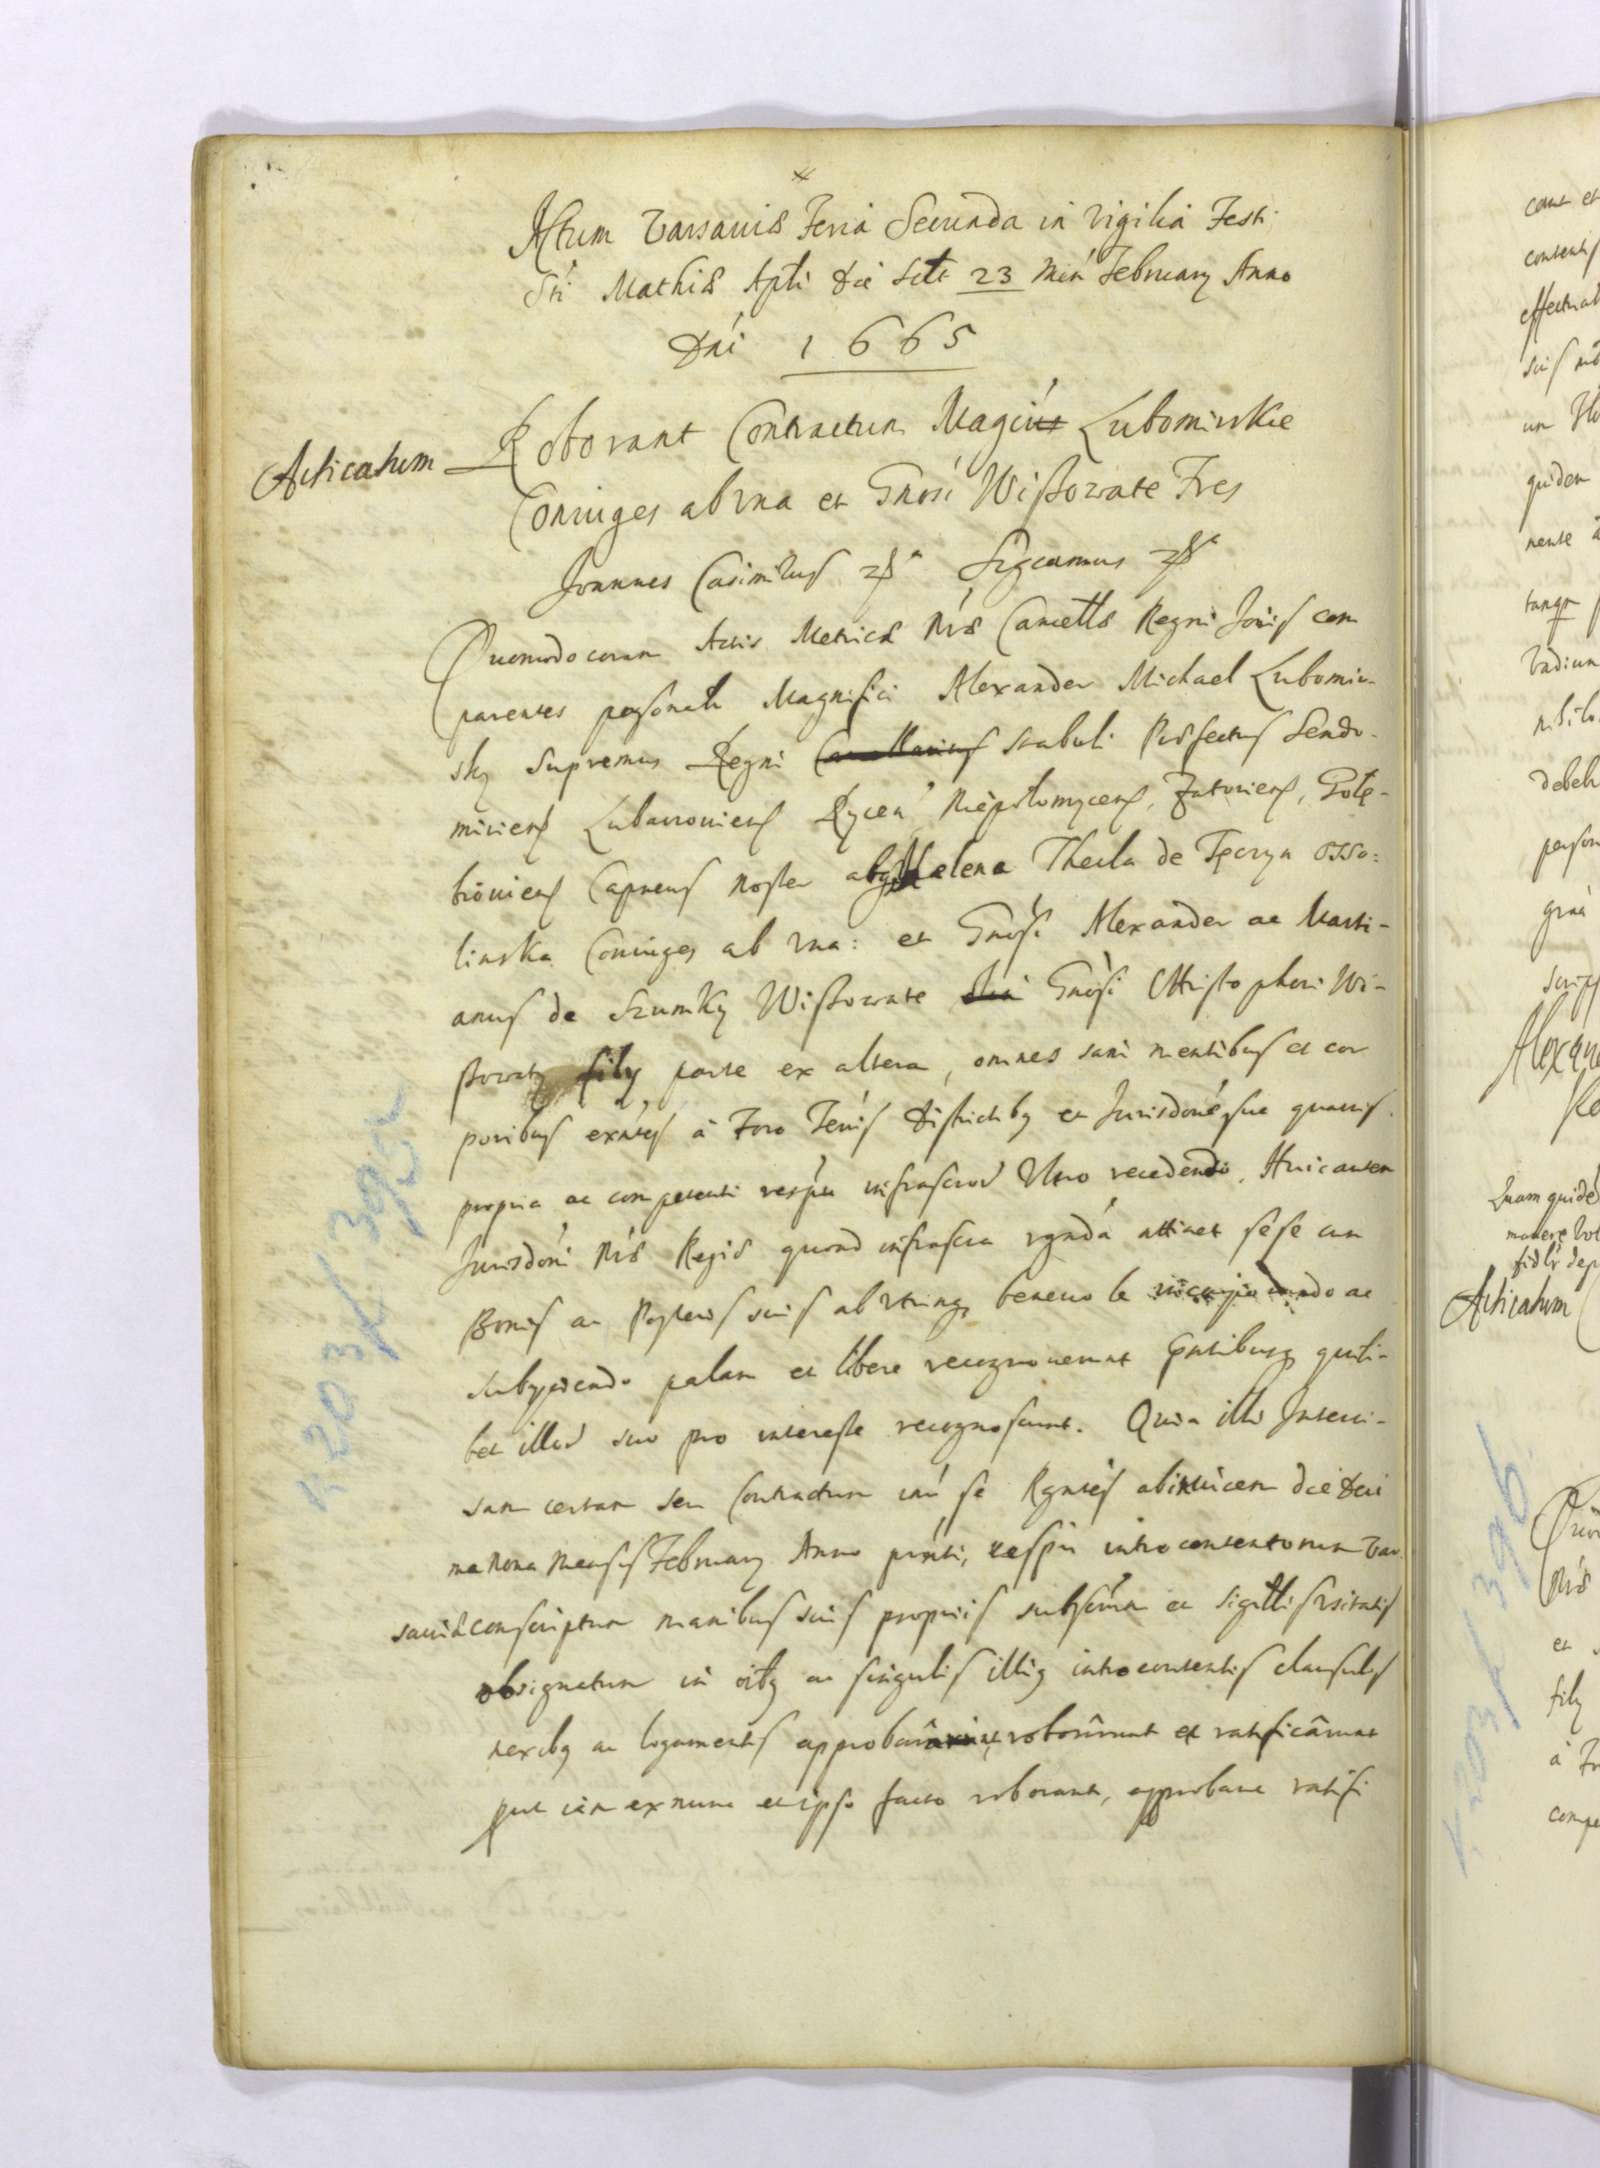 Actum Varsaviæ Feria Secunda in Vigilia Festi
Sti Mathiæ Apłi die scłt 23 Men February Anno
Dni 1665
Acticatum
Roborant Contractum Magci Lubomirskie
Coniuges ab vna et Gnosi Wiszowate Fres
Joannes Casimirus Significamus
Quomodo coram Actis Metrices Nræ Cancellæ Regni Iovis com
parentes personalr Magnifici Alexander Michael Lubomir-
sky Supremus Regni Cancellarius stabuli Præfectus Sendo-
miriens Lubaczoviens Rycen Niepołomycens, Zatoriens, Gołę-
bioviens Capneus noster ac Helena Thecla de Tęczyn Osso-
linska Coniuges ab vna: et Gnosi Alexander ac Marti-
anus de Szumky Wiszowate Gnosi Christophori Wi-
szowaty fily parte ex altera, omnes sani mentibus et cor
poribus exntes à Foro Terris Districtby et Jurisdone sue quavis
propria ac competenti respu infrascror Vtro recedendo. Huic autem
Jurisdoni Nræ Regiæ quoad infrascra rgnda attinet sese cum
Bonis ac Posteris suis ab vtrinq benevole incorporando ac
subyciendo palam et libere recognoverunt Pntibusq quili-
bet illor suo pro interesse recognoscunt. Quia illi Interci-
sam certam seu Contractum int se Rgntes abinvicem die deci
ma nona Mensis February Anno prnti, respu introcontentorum Var
saviæ conscriptum manibus suis propriis subscrm et sigillis vsitatis
obsignatum in oibq ac singulis illiq introcontentis clausulis
nexibq ac ligamentis approbarunt roborârunt et ratificârunt
put iam ex nunc et ipso facto roborant, approbant ratifi
k. 203v 395
cant et
contentis
effectual
suis
un
quidem
nente
tanqr
Vadium
nihilo
debeb
person
gina
scrip
Alexan
Quam quide
manere
fidlr dep
Acticatum
Quo
Nræ
et
fily
à Fr
compe
k. 203v 396